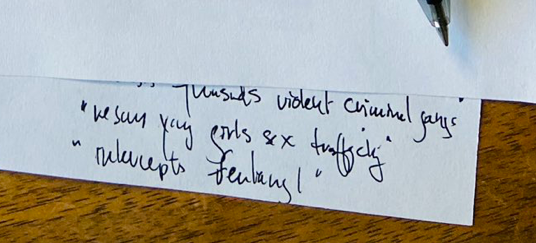 violent criminal gangs"
"rescues young girls sex trafficking"
"intercepts fentanyl"